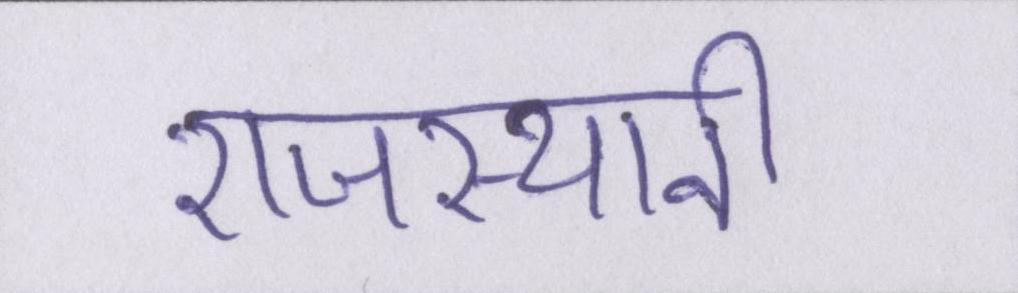 राजस्थानी